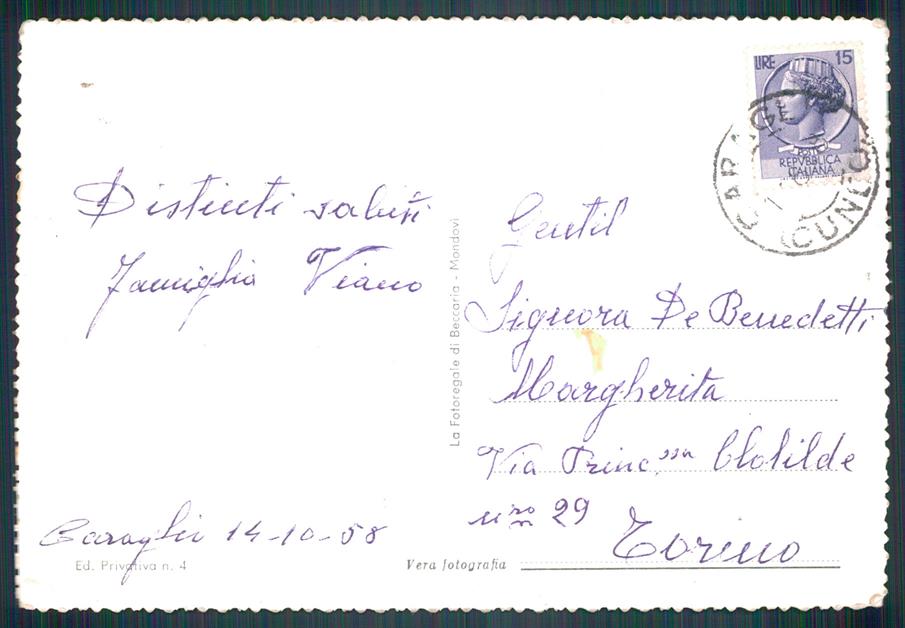 Distinti saluti
Famiglia Viano
Caraglio 14-10-58
Ed. Privativa n. 4
La Fotoregale di Beccaria - Mondovì
Vera fotografia
LIRE 15
POSTE
REPVBBLICA
ITALIANA
CARAGLIO
(CUNEO)
Gentil
Signora De Benedetti
Margherita
Via Princ.ssa Clotilde
nro 29
Torino